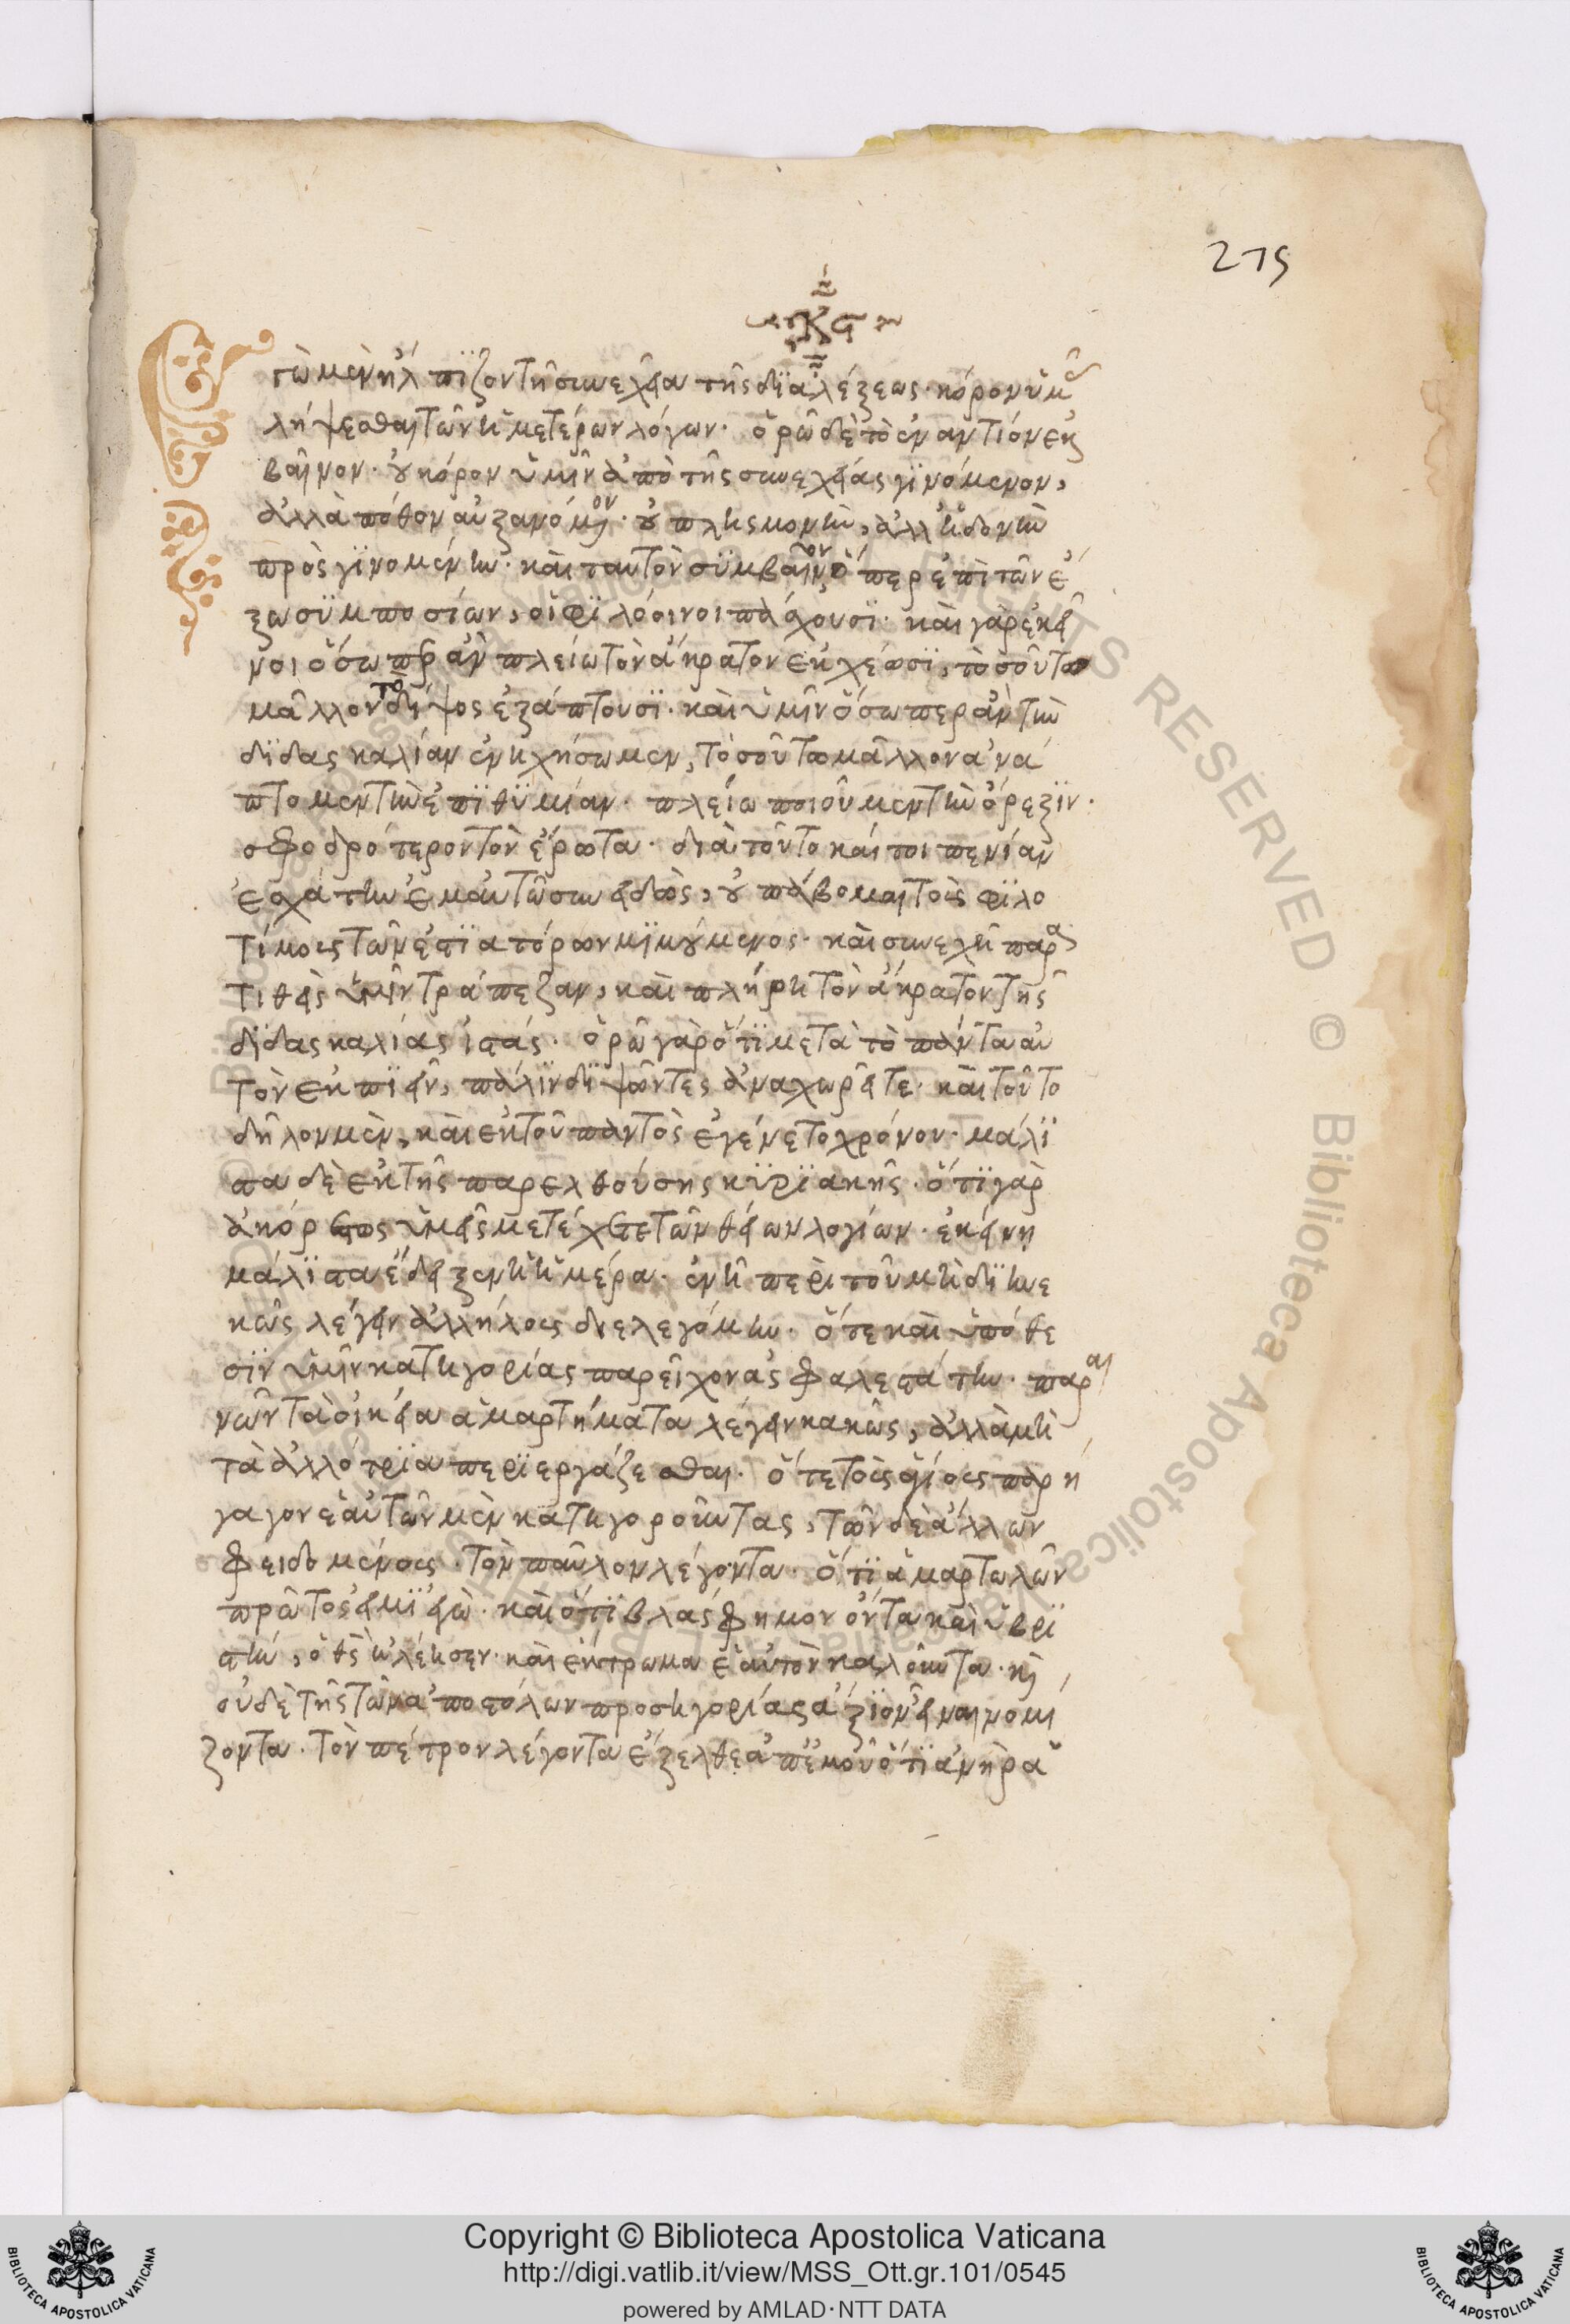 275
κϛ
Ἐγὼ μὲν ἤλπϊζον τῆ συνεχεία τῆς δϊαλέξεως· κόρον ὑμᾶς
λήψεσθαι τῶν ἡμετέρων λόγων· ὁρῶ δὲ τὸ ἐναντίον ἐκ
βαῖνον· οὐ κόρον ὑμῖν ἀπὸ τῆς συνεχείας γϊνόμενον,
ἀλλὰ πόθον αὐξανόμενον· οὐ πλησμονὴν, ἀλλ' ἡδονὴν
πρὸς γϊνομένην· καὶ ταυτὸν σϋμβαῖνον ὅπερ ἐπὶ τῶν ἔ
ξω σϋμποσίων, οἱ φϊλόοινοι πάσχουσϊ· καὶ γὰρ ἐκεῖ
νοι ὅσωπερ ἂν πλείω τὸν ἄκρατον ἐκχέωσϊ, τοσοῦτω
μᾶλλον τὸ δίψος ἐξάπτουσϊ· καὶ ὑμῖν ὅσωπερ ἂν τὴν
δϊδασκαλίαν ἐνηχήσωμεν, τοσοῦτω μᾶλλον ἀνά
πτομεν τὴν ἐπϊθϋμίαν· πλείω ποιοῦμεν τὴν ὄρεξϊν·
σφοδρότερον τὸν ἔρωτα· διὰ τοῦτο καί τοι πενίαν
ἐσχάτην ἐμαυτῶ συνειδὼς, οὐ παύομαι τοὺς φϊλο
τίμους τῶν ἑστϊατόρων μϊμούμενος· καὶ συνεχῆ παρα
τιθεὶς ὑμῖν τράπεζαν, καὶ πλήρη τὸν ἄκρατον τῆς
δϊδασκαλίας ἱστάς· ὁρῶ γὰρ ὅτϊ μετὰ τὸ πάντα αὐ
τὸν ἐκπϊεῖν, πάλϊν δϊψῶντες ἀναχωρεῖτε· καὶ τοῦτο
δῆλον μὲν, καὶ ἐκ τοῦ παντὸς ἐγένετο χρόνου· μάλϊ
στα δὲ ἐκ τῆς παρελθούσης κϋρϊακῆς· ὅτϊ γὰρ
ἀκόρεστως ὑμεῖς μετέχετε τῶν θείων λογίων· ἐκείνη
μάλϊστα ἔδειξεν ἡ ἡμέρα· ἐν ἧ περὶ τοῦ μὴ δϊηνε
κῶς λέγειν ἀλλήλους διελεγόμην· ὅτε καὶ ὑπόθε
σϊν ὑμῖν κατηγορίας παρεῖχον ἀσφαλεστάτην· παραι
νῶν τὰ οἰκεῖα ἁμαρτήματα λέγειν κακῶς, ἀλλὰ μὴ
τὰ ἀλλότρϊα περϊεργάζεσθαι· ὅτε τοὺς ἁγίους παρή
γαγον ἑαυτῶν μὲν κατηγοροῦντας, τῶν δὲ ἄλλων
φειδομένους· τὸν παῦλον λέγοντα· ὅτϊ ἁμαρτωλῶν
πρῶτος εἰμϊ ἐγὼ· καὶ ὅτϊ βλάσφημον ὄντα καὶ ὑβρϊ
στὴν, ὁ θς ἠλέησεν· καὶ ἔκτρωμα ἑαυτὸν καλοῦντα· καὶ
οὐδὲ τῆς τῶν ἀποστόλων προσηγορίας ἄξϊον εἶναι νομί
ζοντα· τὸν πέτρον λέγοντα ἔξελθε ἀπ' ἐμοῦ ὅτϊ ἀνὴρ ἁ
Copyright © Biblioteca Apostolica Vaticana
http://digi.vatlib.it/view/MSS_Ott.gr.101/0545
powered by AMLAD·NTT DATA